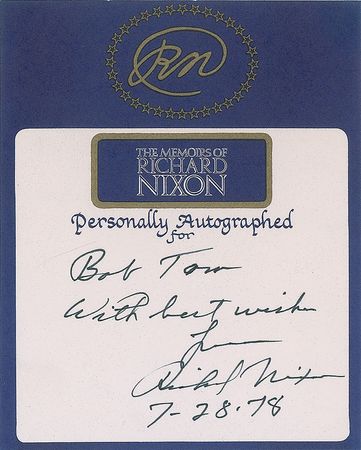 RN
THE MEMOIRS OF
RICHARD
NIXON
Personally Autographed
for
Bob Tow
With best wishes
from
Richard Nixon
7-28-78